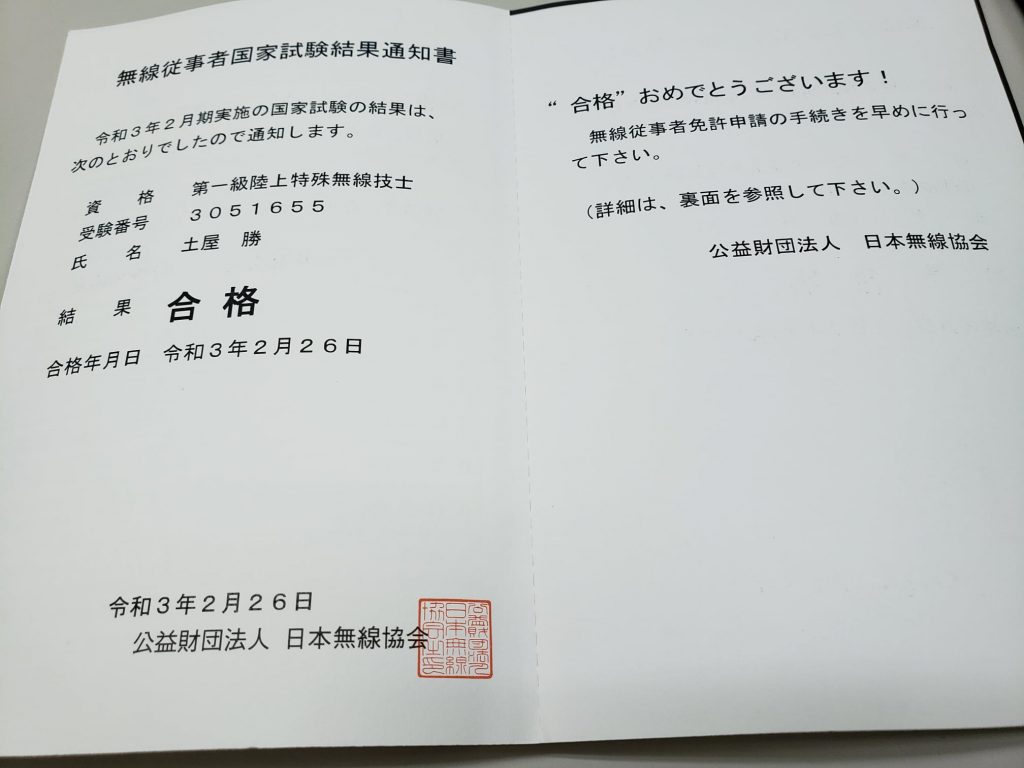 無線従事者国家試験結果通知書
令和３年２月期実施の国家試験の結果は、
次のとおりでしたので通知します。
資　　格　第一級陸上特殊無線技士
受験番号　３０５１６５５
氏　　名　土屋　勝
結　　果　合　格
合格年月日　令和３年２月２６日
令和３年２月２６日
公益財団法人　日本無線協会
“合格”おめでとうございます！
無線従事者免許申請の手続きを早めに行っ
て下さい。
（詳細は、裏面を参照して下さい。）
公益財団法人　日本無線協会